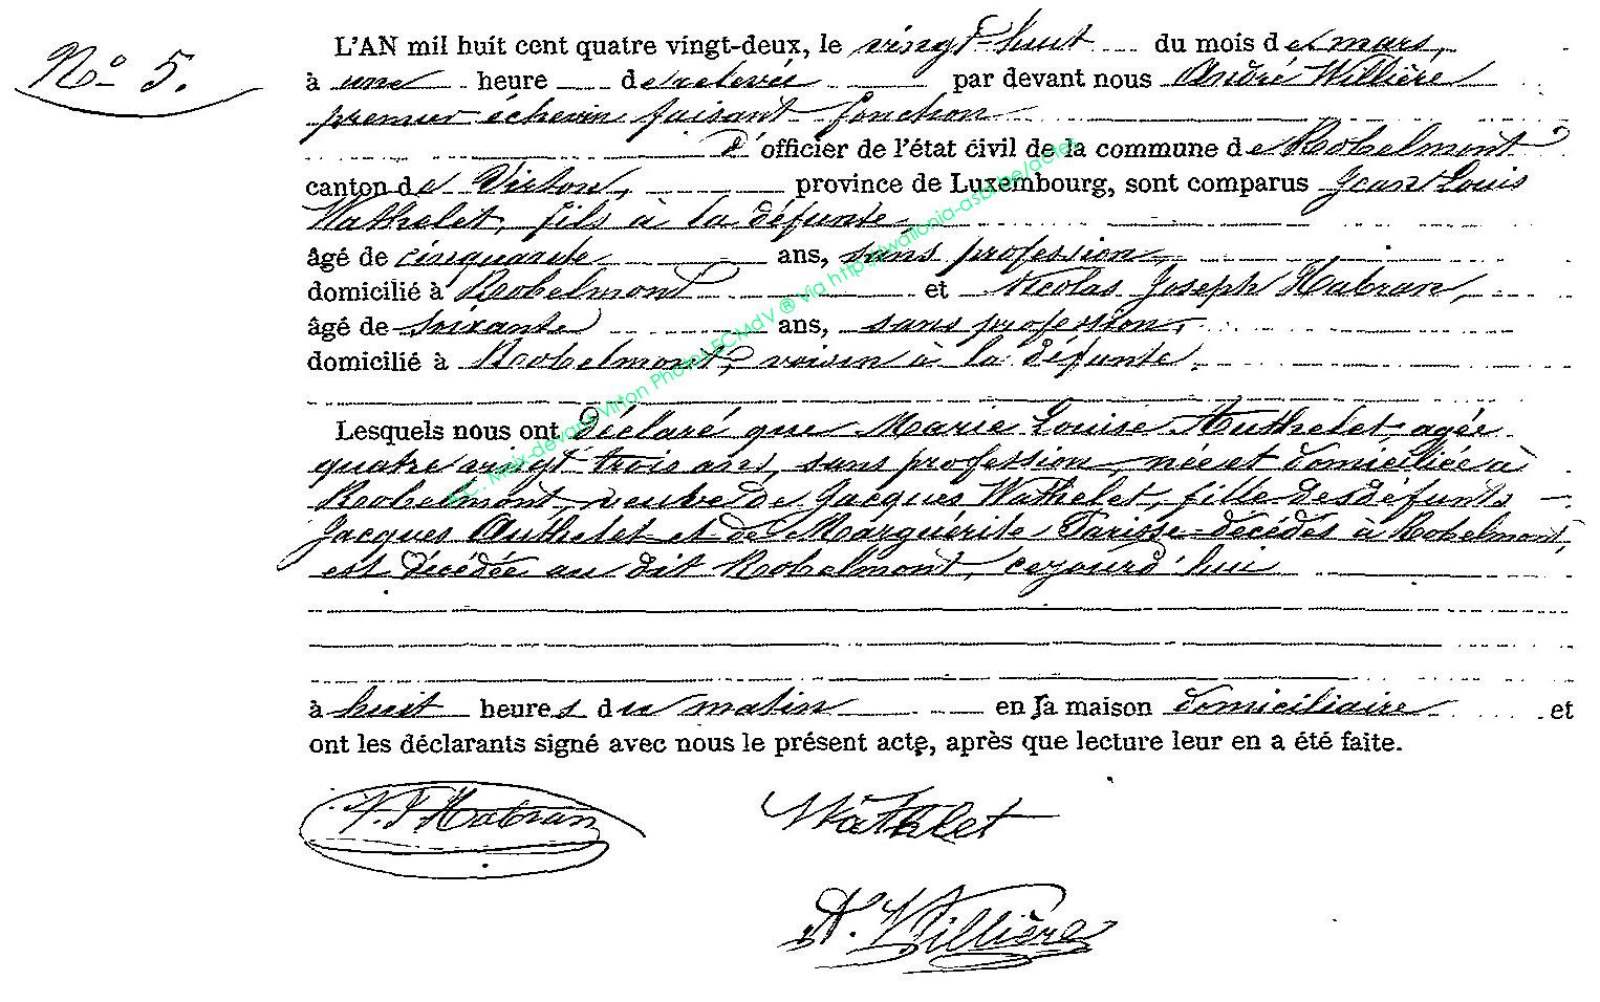 N° 5.
L'AN mil huit cent quatre vingt-deux, le vingt-huit du mois de mars,
à une heure de relevée par devant nous André Willière
premier échevin faisant fonction
d'officier de l'état civil de la commune de Robelmont
canton de Virton, province de Luxembourg, sont comparus Jean Louis
Wathelet, fils à la défunte
âgé de cinquante ans, sans profession,
domicilié à Robelmont et Nicolas Joseph Habran,
âgé de soixante ans, sans profession,
domicilié à Robelmont, voisin à la défunte.
Lesquels nous ont déclaré que Marie Louise Authelet agée
quatre vingt trois ans, sans profession, née et domiciliée à
Robelmont, veuve de Jacques Wathelet, fille des défunts
Jacques Authelet et de Marguérite Parisse décédés à Robelmont,
est décédée au dit Robelmont, cejourd'hui
à huit heures du matin en sa maison domiciliaire et
ont les déclarants signé avec nous le présent acte, après que lecture leur en a été faite.
N. J Habran Wathelet
A. Willière
A.C. Meix-devant-Virton Photos ECMdV ® Via http://wallonia-asbl.be/actes